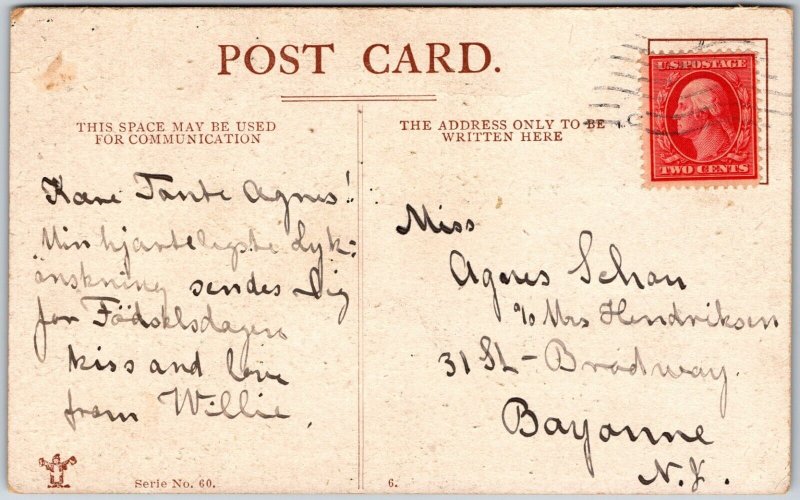 POST CARD.
THIS SPACE MAY BE USED
FOR COMMUNICATION
Kære Tante Agnes!
Min hjærteligste Lyk-
önskning sendes Dig
for Födselsdagen
kiss and love
from Willie.
Serie No. 60.
THE ADDRESS ONLY TO BE
WRITTEN HERE
U.S. POSTAGE
TWO CENTS
Miss
Agnes Schou
c/o Mrs Hendriksen
31 St - Brodway.
Bayonne
N.J.
6.